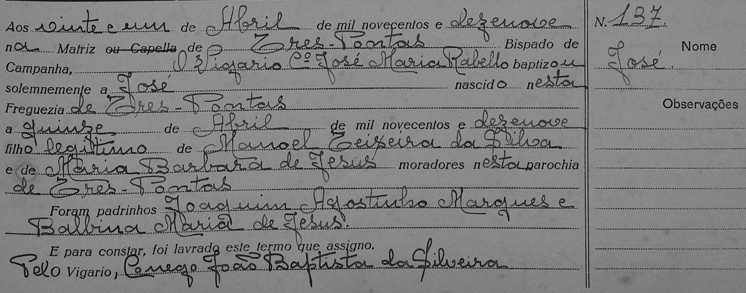 Aos vinte e um de Abril de mil novecentos e dezenove
na Matriz ou Capella de Tres-Pontas Bispado de
Campanha, O Vigario Cº José Maria Rabello baptizou
solemnemente a José nascido nesta
Freguezia de Tres-Pontas
a quinze de Abril de mil novecentos e dezenove
filho legitimo de Manoel Teixeira da Silva
e de Maria Barbara de Jesus moradores nesta parochia
de Tres-Pontas
Foram padrinhos Joaquim Agostinho Marques e
Balbina Maria de Jesus.
E para constar, foi lavrado este termo que assigno.
Pelo Vigario, Conego João Baptista da Silveira
N. 137.
Nome
José.
Observações